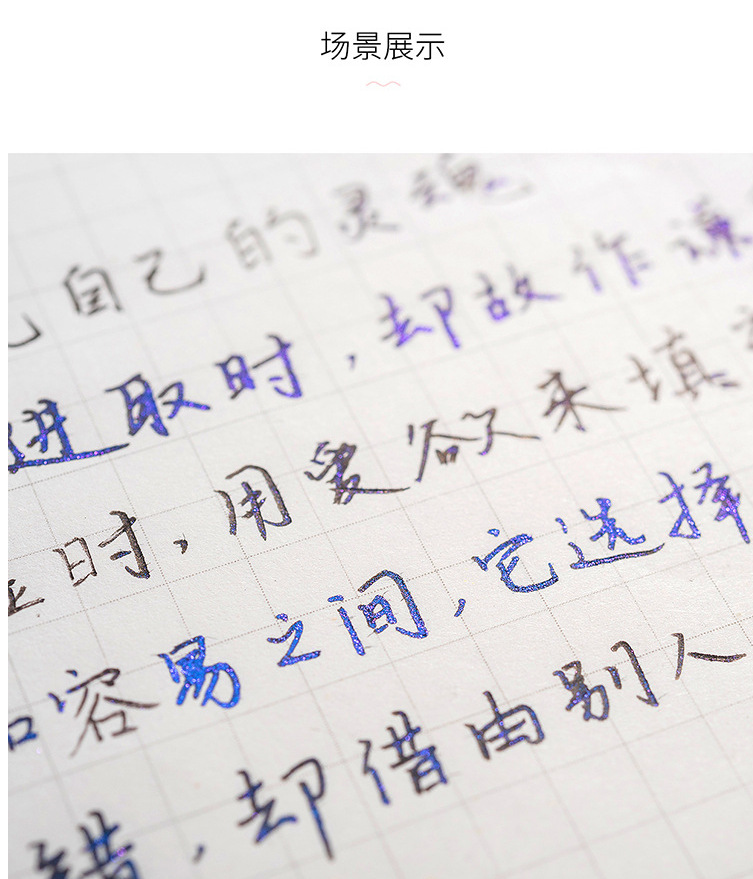 场景展示
己自己的灵魂
进取时,却故作谦
虚时,用爱欲来填
和容易之间,它选择
错,却借由别人